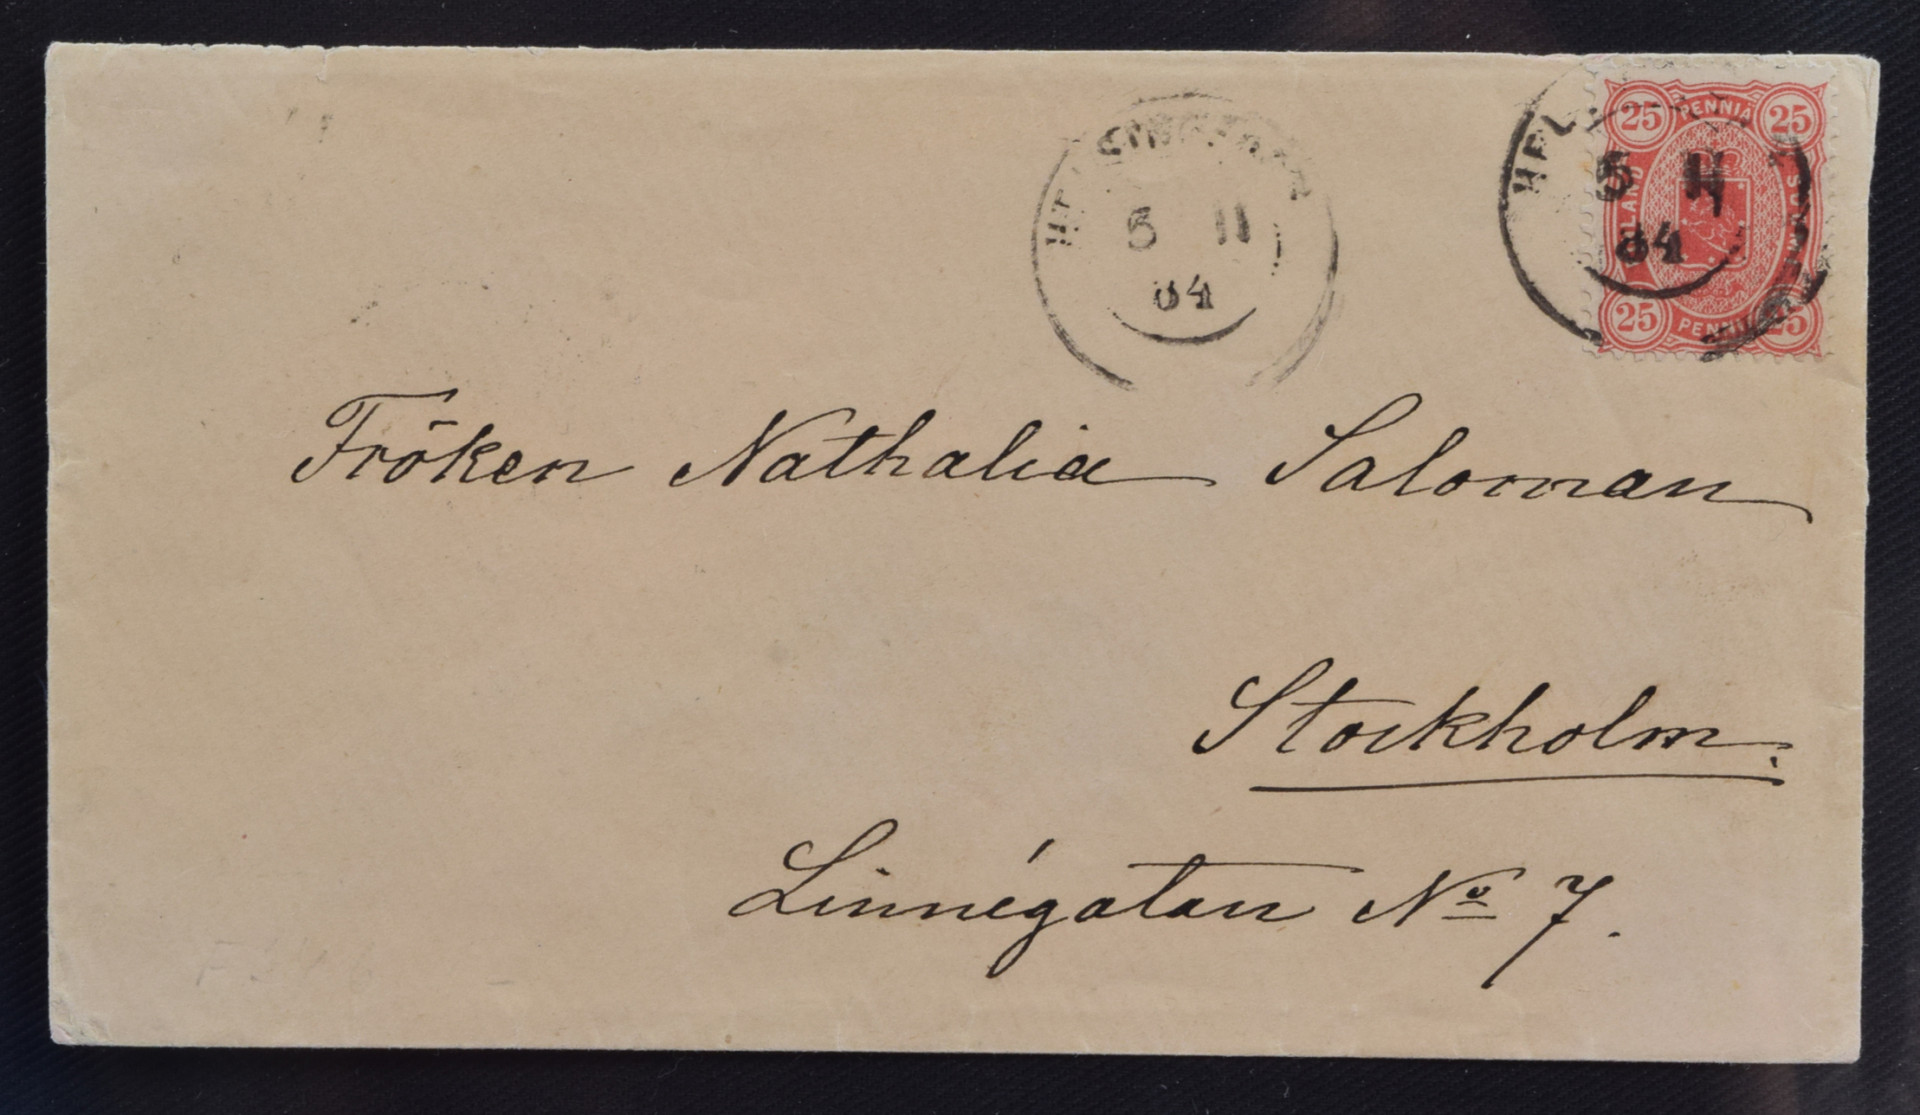 HELSINGFORS
5 11
84
HEL
5 11
84
25 PENNIÄ 25
25 PENNI 25
Fröken Nathalia Saloman
Stockholm.
Linnégatan No 7.